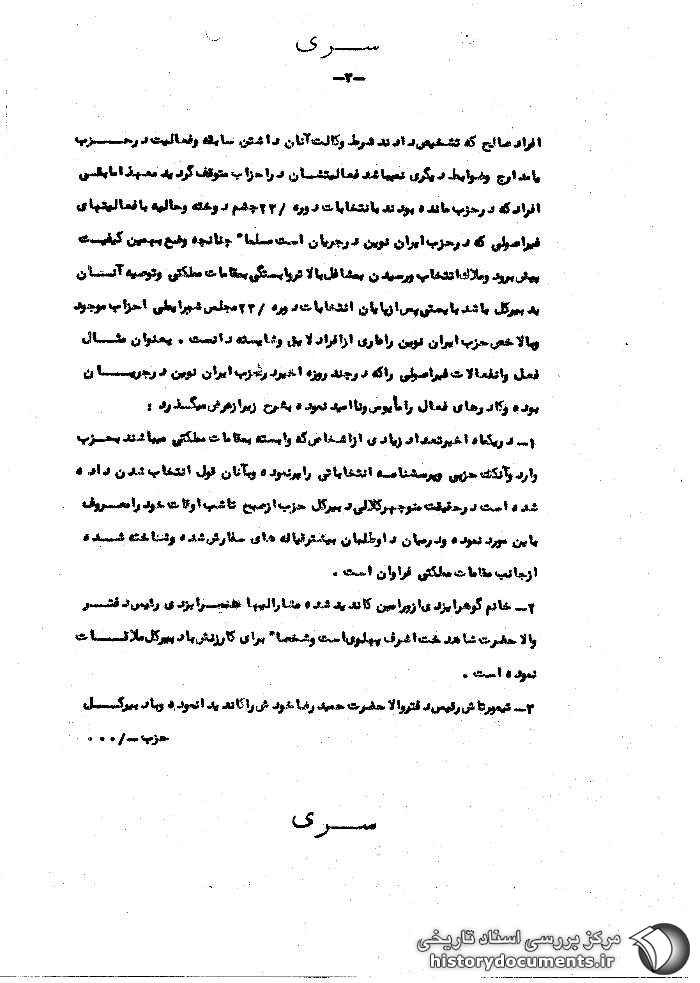 سری
-۲-
افراد صالح که تشخیص دادند شرط وکالت آنان داشتن سابقه وفعالیت در حزب
یا مدارج وضوابط دیگری نمیباشد فعالیتشان در احزاب متوقف گردید معهذا مابقی
افراد که در حزب مانده بودند با انتخابات دوره /۲۳ چشم دوخته وحالیه با فعالیتهای
غیراصولی که در حزب ایران نوین در جریان است مسلما" چنانچه وضع بهمین کیفیت
پیش برود وملاک انتخاب ورسیدن بمشاغل بالاتر وابستگی بمقامات مملکتی وتوصیه آنان
به دبیرکل باشد بایستی پس از پایان انتخابات دوره /۲۳ مجلس شورایطی احزاب موجود
وبالاخص حزب ایران نوین را عاری از افراد لایق وشایسته دانست . بعنوان مثال
فعل وانفعالات غیراصولی را که در چند روزه اخیر در حزب ایران نوین در جریان
بوده وکادرهای فعال را مأیوس وناامید نموده بشرح زیر از عرض میگذرد :
۱- در یکماه اخیر تعداد زیادی از اشخاص که وابسته بمقامات مملکتی میباشند بحزب
وارد وآنکت حزبی وپرسشنامه انتخاباتی را پر نموده وبآنان قول انتخاب شدن داده
شده است در حقیقت منوچهر کلالی دبیرکل حزب از صبح تا شب اوقات خود را مصروف
باین مورد نموده ودر میان داوطلبان بیشتر قیافه های سفارش شده وشناخته شده
از جانب مقامات مملکتی فراوان است .
۲- خانم گوهر ایزدی از ورامین کاندید شده مشارالیها همسر ایزدی رئیس دفتر
والا حضرت شاهدخت اشرف پهلوی است وشخصا" برای کارزنش با دبیرکل ملاقات
نموده است .
۳- تیمورتاش رئیس دفتر والا حضرت حمید رضا خودش را کاندیدا نموده وبا دبیرکل
حزب -/۰۰۰
سری
مرکز بررسی اسناد تاریخی
historydocuments.ir